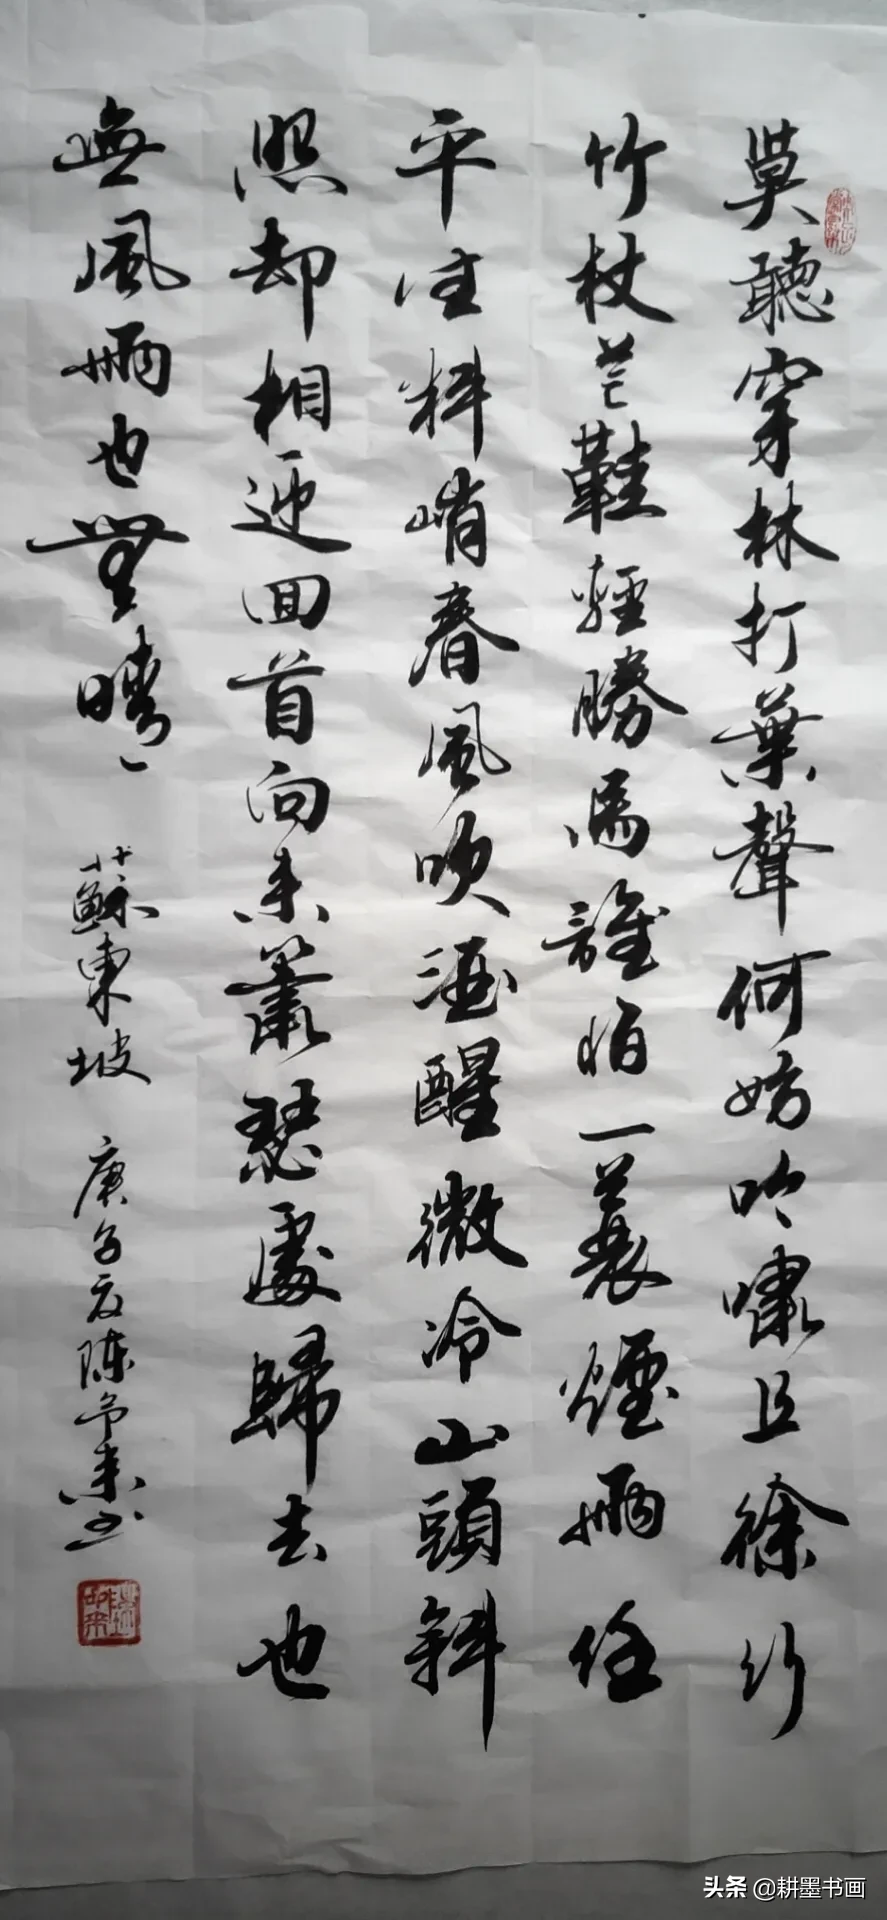 莫聽穿林打葉聲何妨吟嘯且徐行
竹杖芒鞋輕勝馬誰怕一蓑煙雨任
平生料峭春風吹酒醒微冷山頭斜
照却相迎回首向来蕭瑟處歸去也
無風雨也無晴 蘇東坡 庚子夏陳来书
头条 @耕墨书画